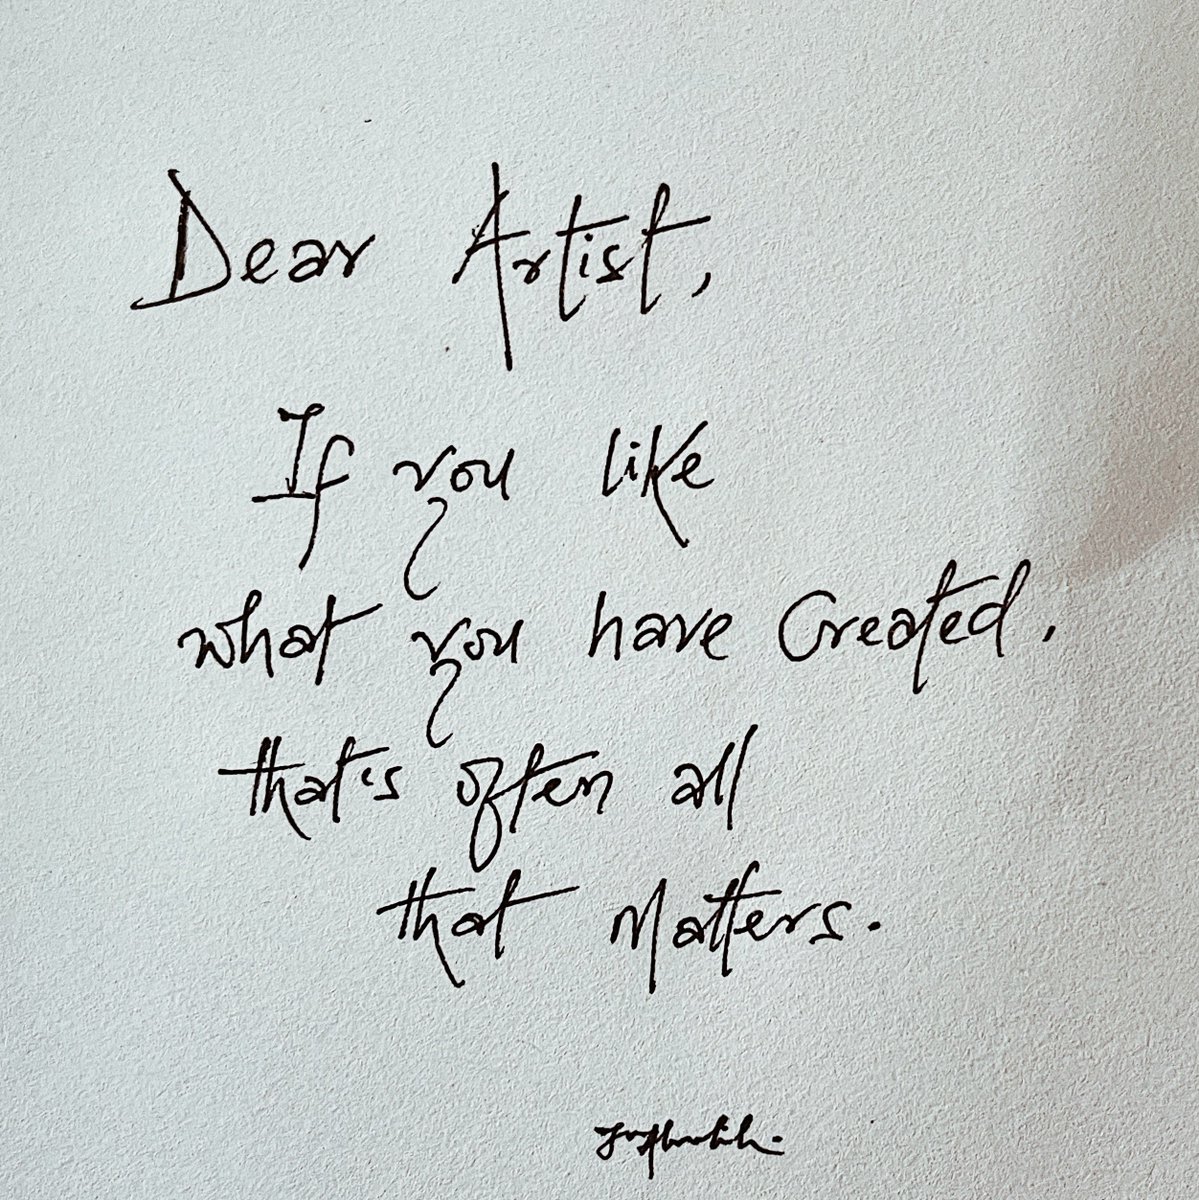 Dear Artist,
If you like
what you have Created,
that's often all
that Matters.